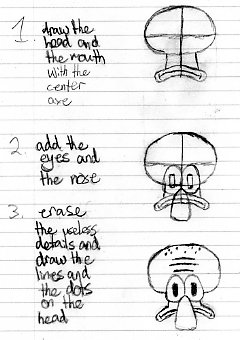 1. draw the
head and
the mouth
with the
center
axe
2. add the
eyes and
the nose
3. erase
the useless
details and
draw the
lines and
the dots
on the
head